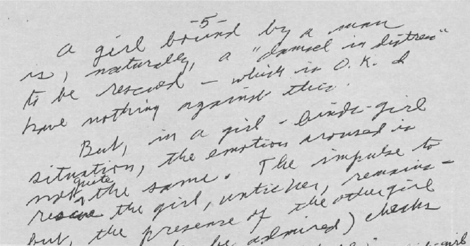 -5-
A girl bound by a man
is, naturally, a "damsel in distress"
to be rescued - which is O.K. I
have nothing against this.
But, in a girl-binds-girl
situation, the emotion aroused is
not quite the same. The impulse to
rescue the girl, untie her, remains -
but, the presence of the other girl
be admired) checks